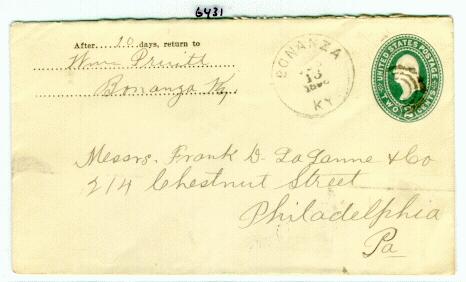 6431
After 10 days, return to
Wm Pruitt
Bonanza Ky.
BONANZA
13
KY.
UNITED STATES POSTAGE
TWO CENTS
2
Messrs. Frank D. LaLanne & Co
214 Chestnut Street
Philadelphia
Pa